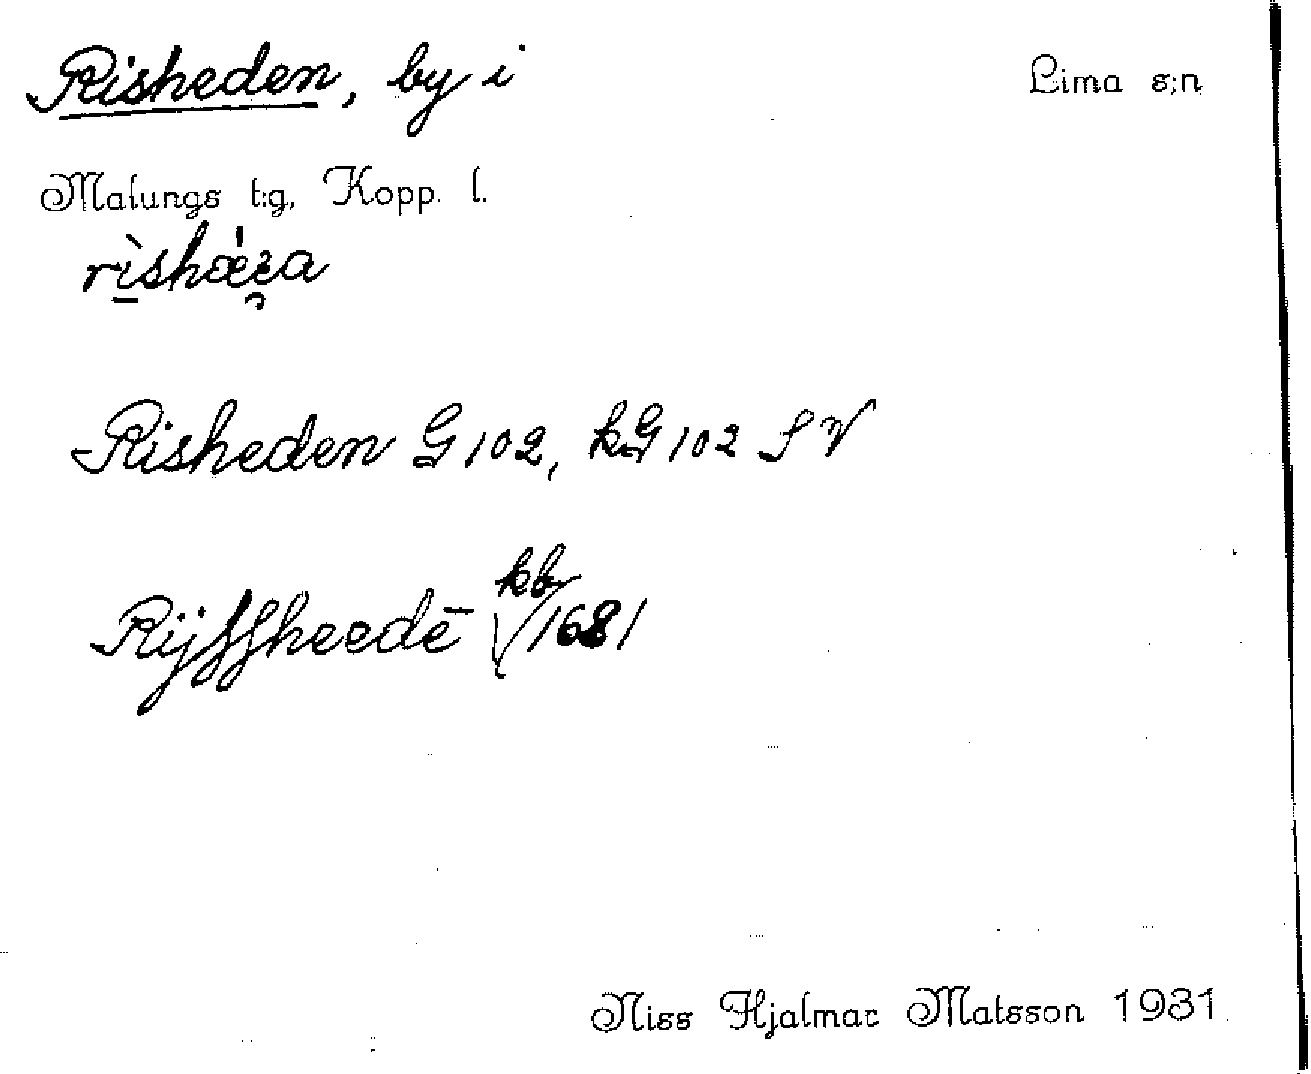 Risheden, by i Lima s:n
Malungs t:g, Kopp. l.
Risheden G102, kG102 SV
Rijssheedē kb 1681
Niss Hjalmar Matsson 1931